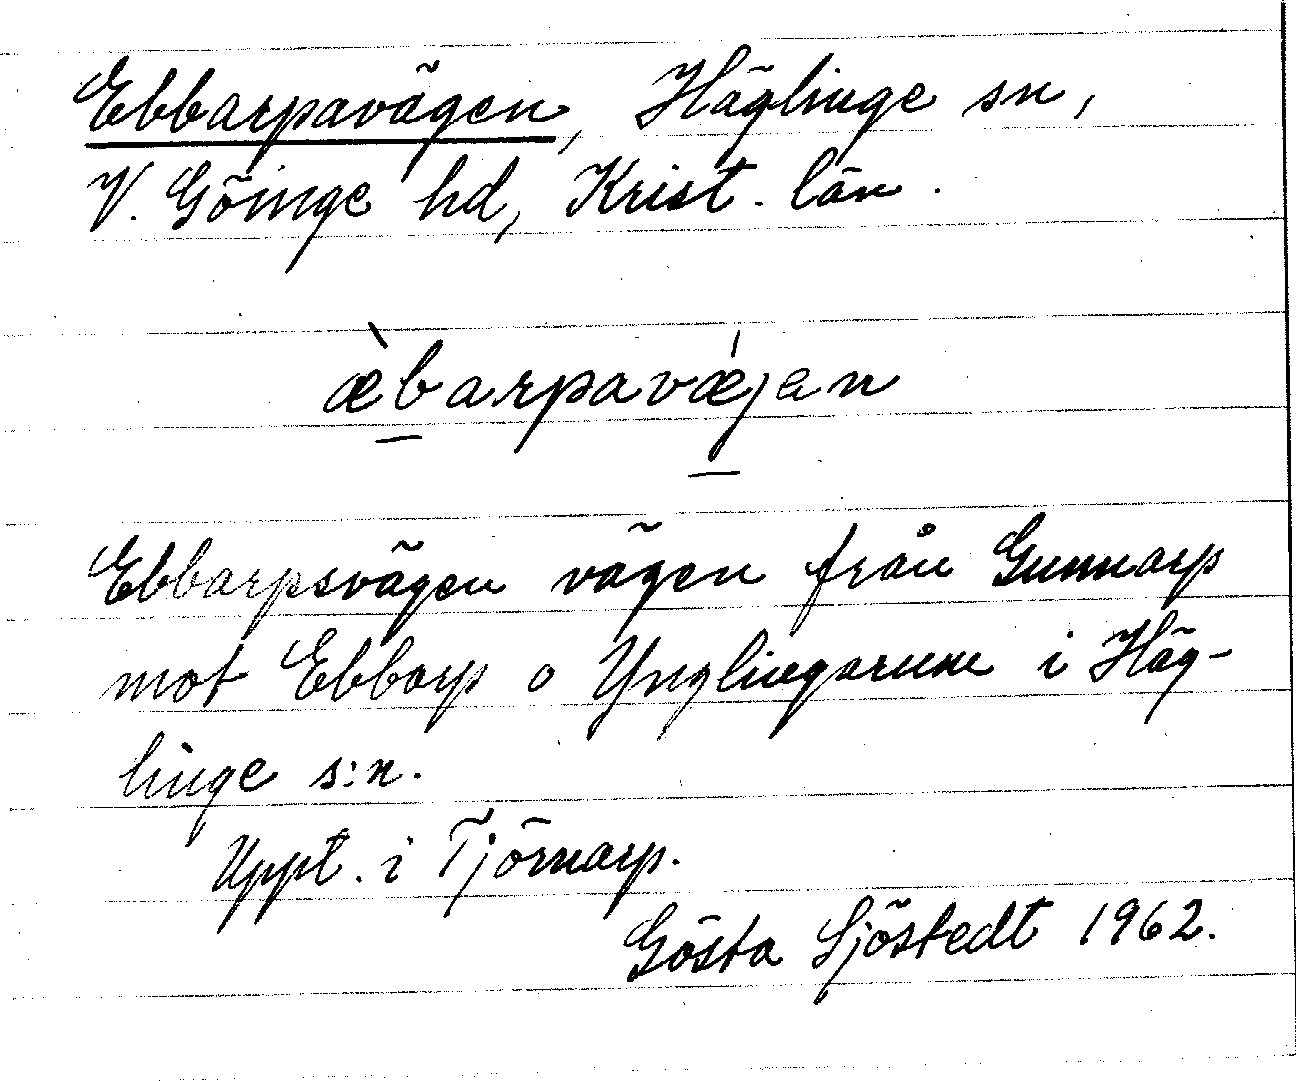 Ebbarpavägen, Häglinge sn,
V. Göinge hd, Krist. län.
æ̀barpavǽjen
Ebbarpsvägen vägen från Gunnarp
mot Ebbarp o Ynglingarum i Häg-
linge s:n.
Uppt. i Tjörnarp.
Gösta Sjöstedt 1962.